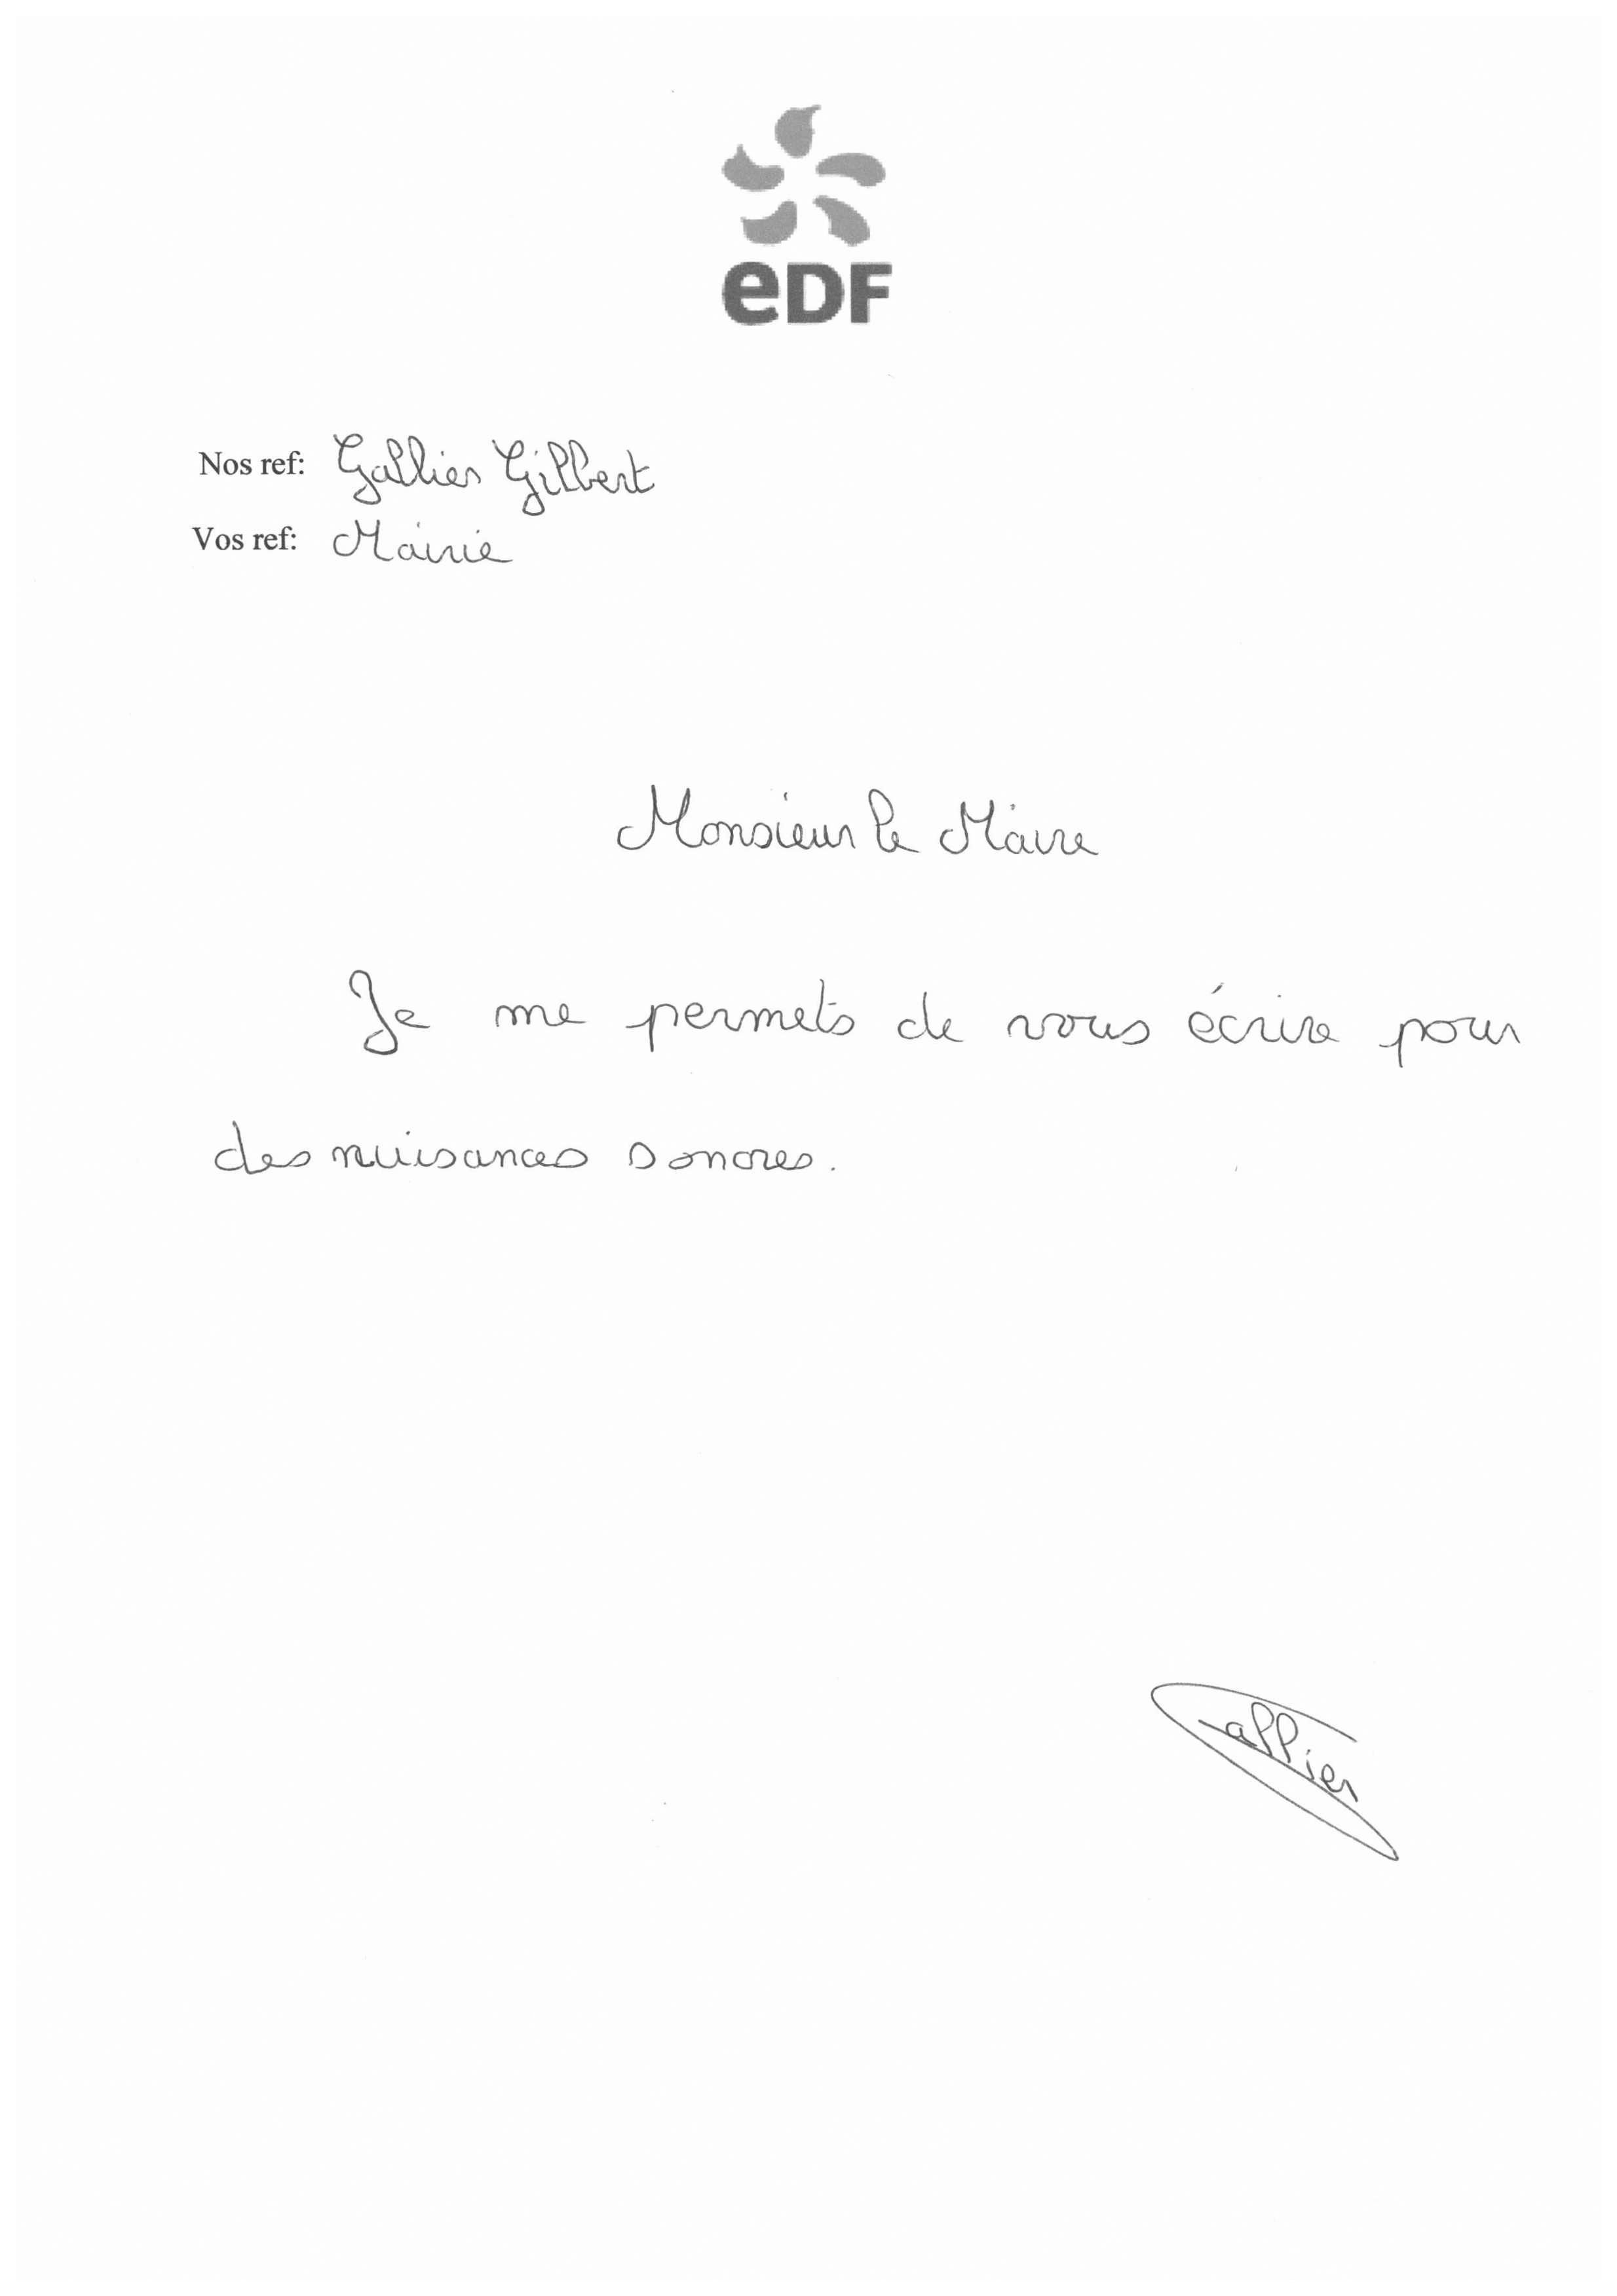 eDF
Nos ref: Gallier Gilbert
Vos ref: Mairie
Monsieur le Maire
Je me permets de vous écrire pour
des nuisances sonores.
Gallier